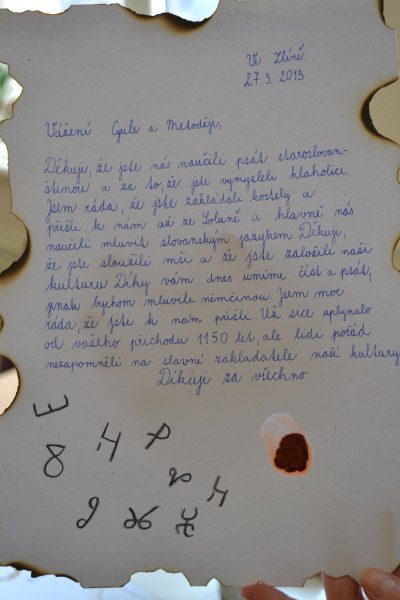 Ve Zlíně
27.3. 2013
Vážení Cyrile a Metoději,
Děkuji, že jste nás naučili psát staroslověn-
štinou a za to, že jste vymysleli hlaholici.
Jsem ráda, že jste zakládali kostely a
přišli k nám až ze Soluně a hlavně nás
naučili mluvit slovanským jazykem Děkuji,
že jste sloužili mši a že jste založili naši
kulturu Díky vám dnes umíme číst a psát,
jinak bychom mluvili němčinou Jsem moc
ráda, že jste k nám přišli Už sice uplynulo
od vašeho příchodu 1150 let, ale lidi pořád
nezapomněli na slavné zakladatele naší kultury
Děkuji za všechno